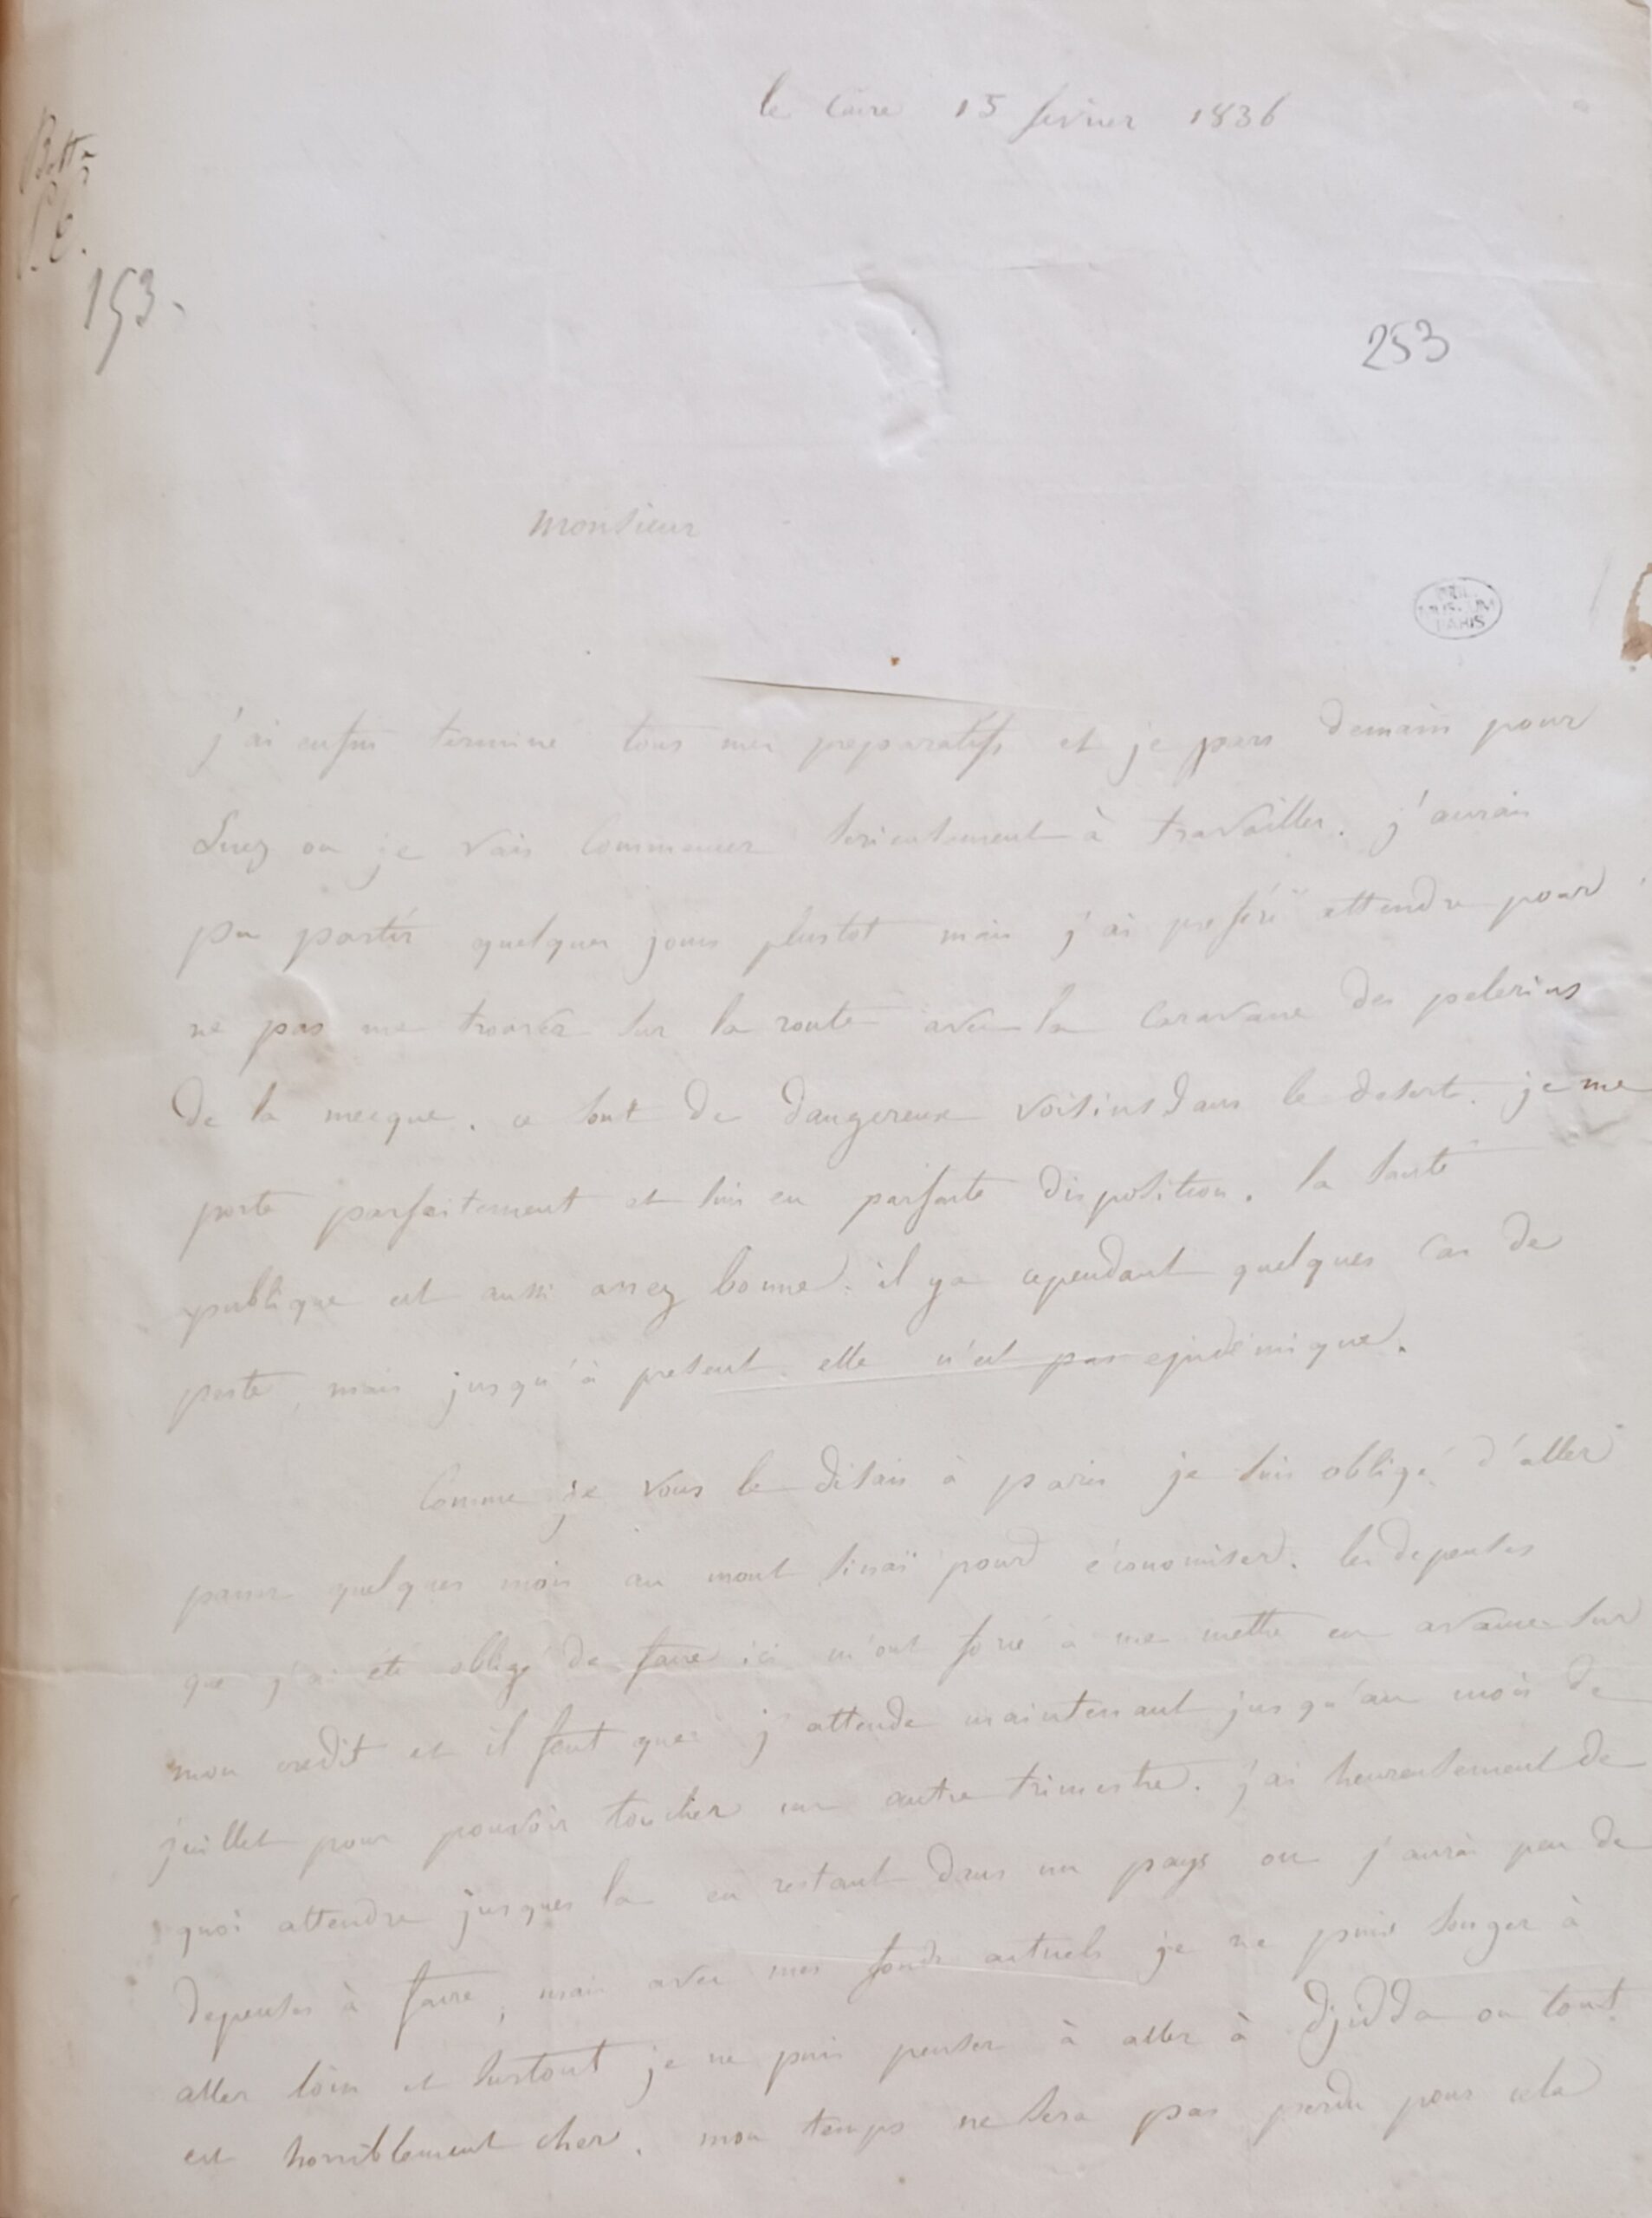 le Caire 15 fevrier 1836
Botta
153.
253
Monsieur
MUSEUM
PARIS
j'ai enfin terminé tous mes preparatifs et je pars demain pour
Suez ou je vais commencer serieusement à travailler. j'aurais
pu partir quelques jours plustot mais j'ai preferé attendre pour
ne pas me trouver sur la route avec la caravane des pelerins
de la mecque. ce sont de dangereux voisins dans le desert. je me
porte parfaitement et suis en parfaite disposition. la santé
publique est aussi assez bonne. il y a cependant quelques cas de
peste, mais jusqu'à present elle n'est pas epidémique.
Comme je vous le disais à paris je suis obligé d'aller
passer quelques mois au mont sinaï pour économiser. les depenses
que j'ai été obligé de faire ici m'ont forcé à me mettre en avance sur
mon credit et il faut que j'attende maintenant jusqu'au mois de
juillet pour pouvoir toucher un autre trimestre. j'ai heureusement de
quoi attendre jusques la en restant dans un pays ou j'aurai peu de
depenses à faire, mais avec mes fonds actuels je ne puis songer à
aller loin et surtout je ne puis penser à aller à djidda ou tout
est horriblement cher. mon temps ne sera pas perdu pour cela